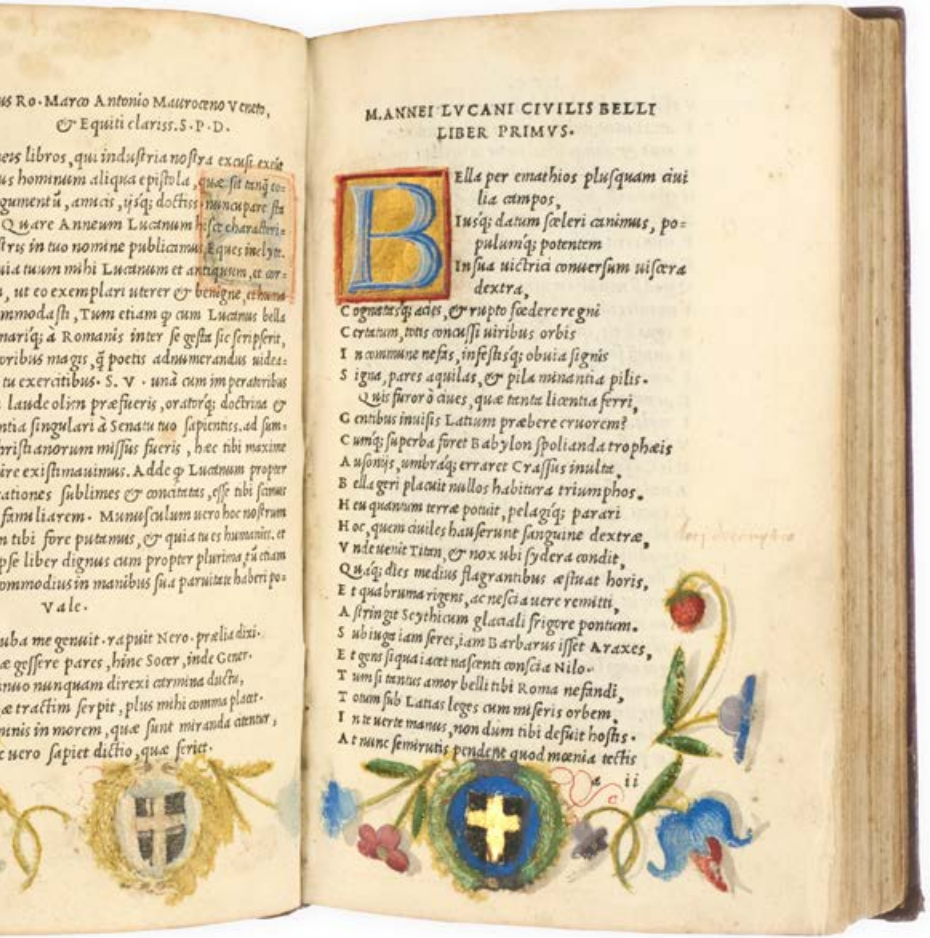 us Ro. Marco Antonio Mauroceno Veneto,
& Equiti clariss. S. P. D.
libros, qui industria nostra excusi
us hominum aliqua epistola, quæ sit tanq̃ co=
gumentũ, amicis, ijsq; doctiss. nuncupare sta
Quare Anneum Lucanum hisce characteri=
stris in tuo nomine publicamus, Eques inclyte.
uia tuum mihi Lucanum et antiquum, et cor=
, ut eo exemplari uterer & benigne, et huma
mmodasti, Tum etiam φ cum Lucanus bella
nariq; à Romanis inter se gesta sic scripserit,
oribus magis, q̃ poetis adnumerandus uidea=
tu exercitibus. S. V. unà cum imperatoribus
laude olim præfueris, oratorq; doctrina &
ntia singulari à Senatu tuo sapientiss. ad sum=
hristianorum missus fueris, hæc tibi maxime
ire existimauimus. Adde φ Lucanum propter
ationes sublimes & concitatas, esse tibi scimus
familiarem. Munusculum uero hoc nostrum
n tibi fore putamus, & quia tu es humanus, et
pse liber dignus cum propter plurima, tũ etiam
ommodius in manibus sua paruitate haberi po=
Vale.
uba me genuit. rapuit Nero. prælia dixi.
æ gessere pares, hinc Socer, inde Gener.
inuo nunquam direxi carmina ductu,
æ tractim serpit, plus mihi comma placet.
minis in morem, quæ sunt miranda citentur,
c uero sapiet dictio, quæ feriet.
M. ANNEI LVCANI CIVILIS BELLI
LIBER PRIMVS.
B Ella per emathios plusquam ciui
lia campos,
Iusq; datum sceleri canimus, po=
pulumq; potentem
In sua uictrici conuersum uiscera
dextra,
Cognatasq; acies, & rupto fœdere regni
Certatum, totis concussi uiribus orbis
In commune nefas, infestisq; obuia signis
Signa, pares aquilas, & pila minantia pilis.
Quis furor ô ciues, quæ tanta licentia ferri,
Gentibus inuisis Latium præbere cruorem?
Cumq; superba foret Babylon spolianda trophæis
Ausonijs, umbraq; erraret Crassus inulta,
Bella geri placuit nullos habitura triumphos.
Heu quantum terræ potuit, pelagiq; parari
Hoc, quem ciuiles hauserunt sanguine dextræ,
Vnde uenit Titan, & nox ubi sydera condit,
Quaq; dies medius flagrantibus æstuat horis,
Et qua bruma rigens, ac nescia uere remitti,
Astringit Scythicum glaciali frigore pontum.
Sub iuga iam seres, iam Barbarus isset Araxes,
Et gens siqua iacet nascenti conscia Nilo.
Tum si tantus amor belli tibi Roma nefandi,
Totum sub Latias leges cum miseris orbem,
In te uerte manus, non dum tibi defuit hostis.
At nunc semirutis pendent quod mœnia tectis
a ii